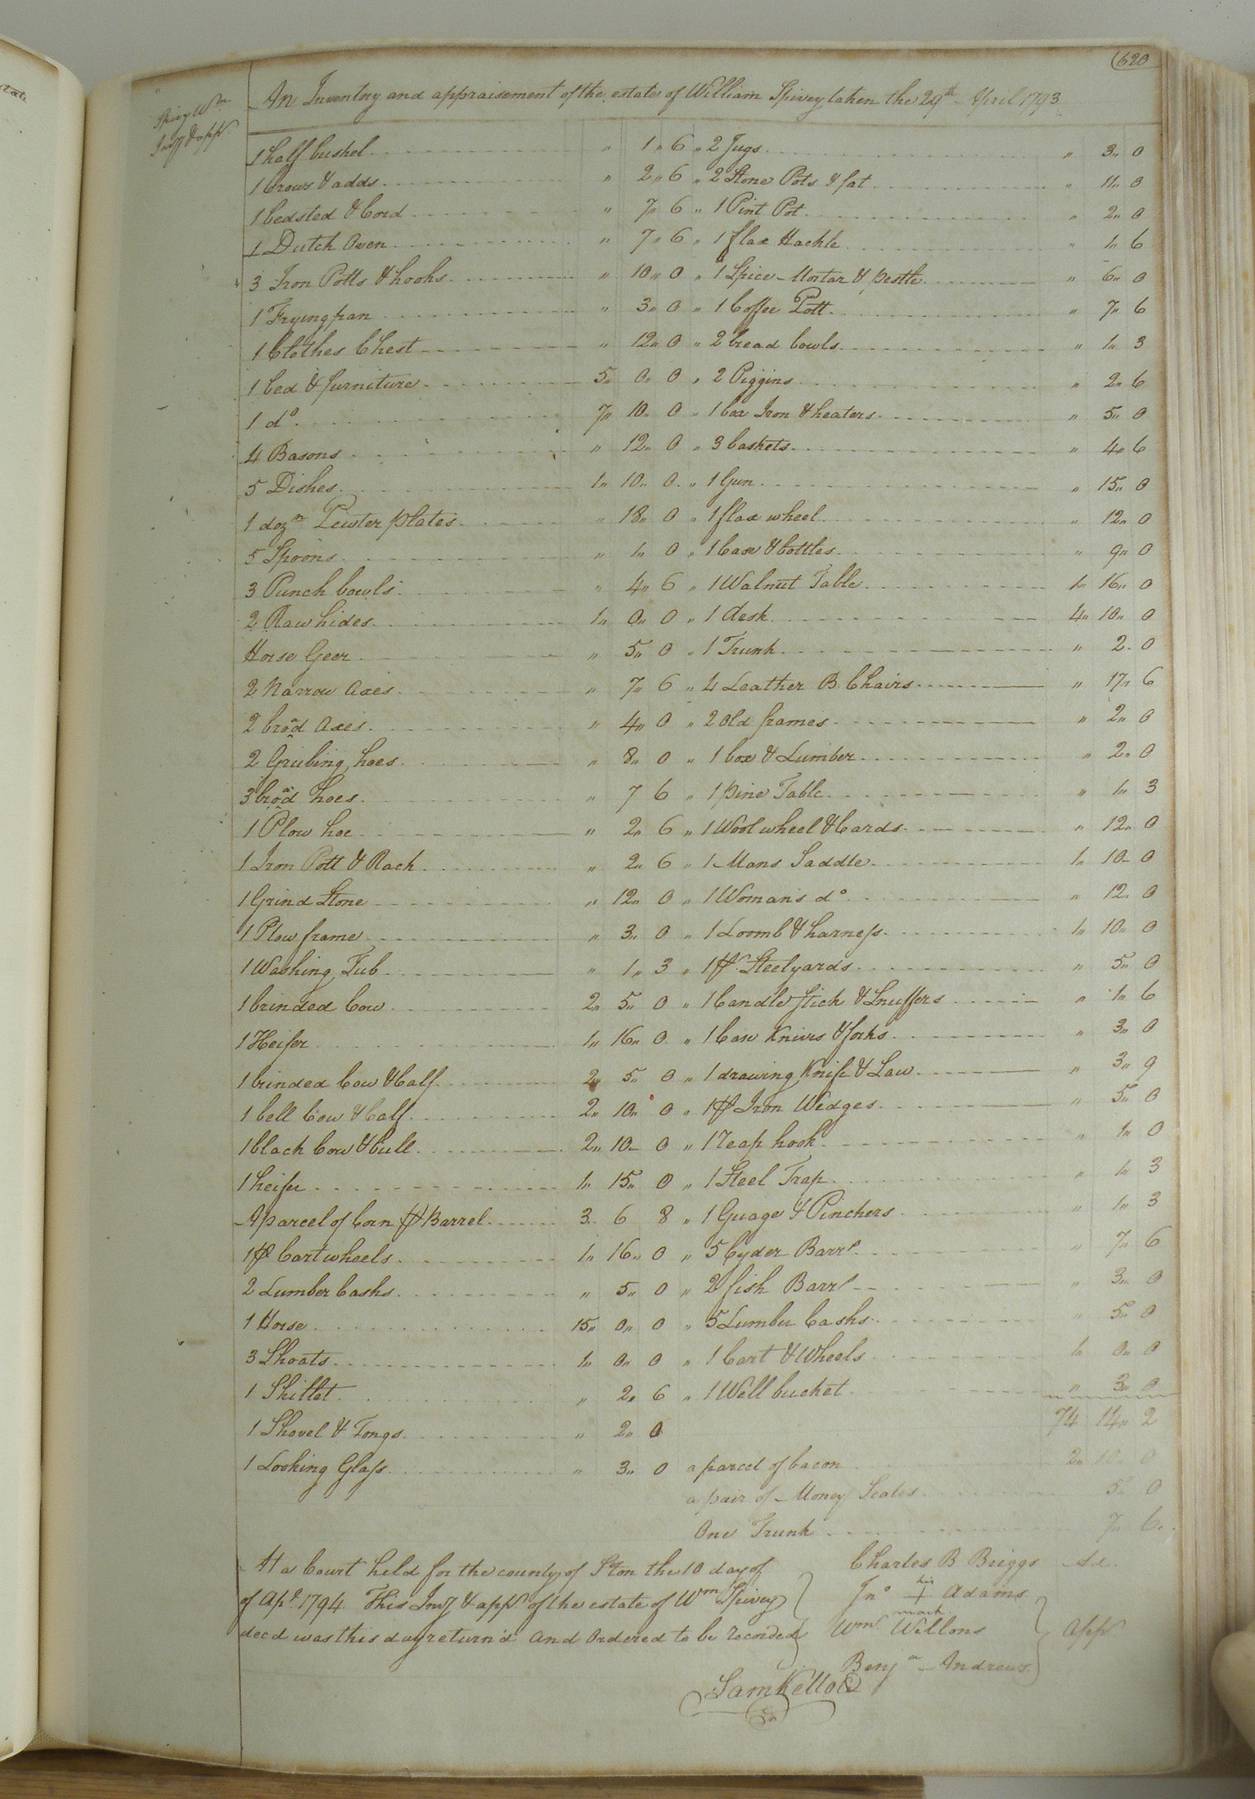 620
Spivey Wm
Invy & app.t
An Inventory and appraisement of the estate of William Spivey taken the 29th April 1793
1 half bushel " 1 " 6 " 2 Jugs " 3 " 0
1 brows & adds " 2 " 6 " 2 Stone Pots & fat " 11 " 0
1 bedsted & Cord " 7 " 6 " 1 Pint Pot " 2 " 0
1 Dutch Oven " 7 " 6 " 1 flax Hackle " 1 " 6
3 Iron Potts & hooks " 10 " 0 " 1 Spice Mortar & pestle " 6 " 0
1 Frying pan " 3 " 0 " 1 Coffee Pott " 7 " 6
1 Clothes Chest " 12 " 0 " 2 bread bowls " 1 " 3
1 bed & furniture 5 " 0 " 0 " 2 Piggins " 2 " 6
1 do 7 " 10 " 0 " 1 box Iron & heaters " 5 " 0
4 Basons " 12 " 0 " 3 baskets " 4 " 6
5 Dishes 1 " 10 " 0 " 1 Gun " 15 " 0
1 dozn Pewter plates " 18 " 0 " 1 flax wheel " 12 " 0
5 Spoons " 1 " 0 " 1 Case & bottles " 9 " 0
3 Punch bowls " 4 " 6 " 1 Walnut Table 1 " 16 " 0
2 Raw hides 1 " 0 " 0 " 1 desk 4 " 10 " 0
Horse Geer " 5 " 0 " 1 Trunk " 2 " 0
2 Narrow axes " 7 " 6 " 4 Leather B. Chairs " 17 " 6
2 broad axes " 4 " 0 " 2 Old frames " 2 " 0
2 Grubing hoes " 8 " 0 " 1 box & Lumber " 2 " 0
3 broad hoes " 7 6 " 1 pine Table " 1 " 3
1 Plow hoe " 2 " 6 " 1 Wool wheel & Cards " 12 " 0
1 Iron Pott & Rack " 2 " 6 " 1 Mans Saddle 1 " 10 " 0
1 Grind Stone " 12 " 0 " 1 Womans do " 12 " 0
1 Plow frame " 3 " 0 " 1 Loomb & harness 1 " 10 " 0
1 Washing Tub " 1 " 3 " 1 pr Steelyards " 5 " 0
1 brinded Cow 2 " 5 " 0 " 1 Candle Stick & Snuffers " 1 " 6
1 Heifer 1 " 16 " 0 " 1 Case Knives & forks " 3 " 0
1 brinded Cow & Calf 2 " 5 " 0 " 1 drawing Knife & Saw " 3 " 9
1 bell Cow & Calf 2 " 10 " 0 " 1 pr Iron Wedges " 5 " 0
1 black Cow & bull 2 " 10 " 0 " 1 reap hook " 1 " 0
1 heifer 1 " 15 " 0 " 1 Steel Trap " 1 " 3
A parcel of Corn pr Barrel 3 6 8 " 1 Guage & Pinchers " 1 " 3
1 pr Cart wheels 1 " 16 " 0 " 5 Cyder Barrs " 7 " 6
2 Lumber Casks " 5 " 0 " 2 fish Barrs " 3 " 0
1 Horse 15 " 0 " 0 " 5 Lumber Casks " 5 " 0
3 Shoats 1 " 0 " 0 " 1 Cart & Wheels 1 " 0 " 0
1 Skillet " 2 " 6 " 1 Well bucket " 3 " 0
1 Shovel & Tongs " 2 " 0 74 14 " 2
1 Looking Glass " 3 " 0 a parcel of bacon 2 " 10 " 0
a pair of Money Scales 5 " 0
One Trunk 7 " 6
At a Court held for the county of Ston the 10 day of
of Apl. 1794 This Invy & appt of the estate of Wm Spivey
decd was this day return'd and Ordered to be recorded
Sam Kello C
Charles B Briggs
Jno his + mark Adams
Wm Willons
Benjn Andrews
appt